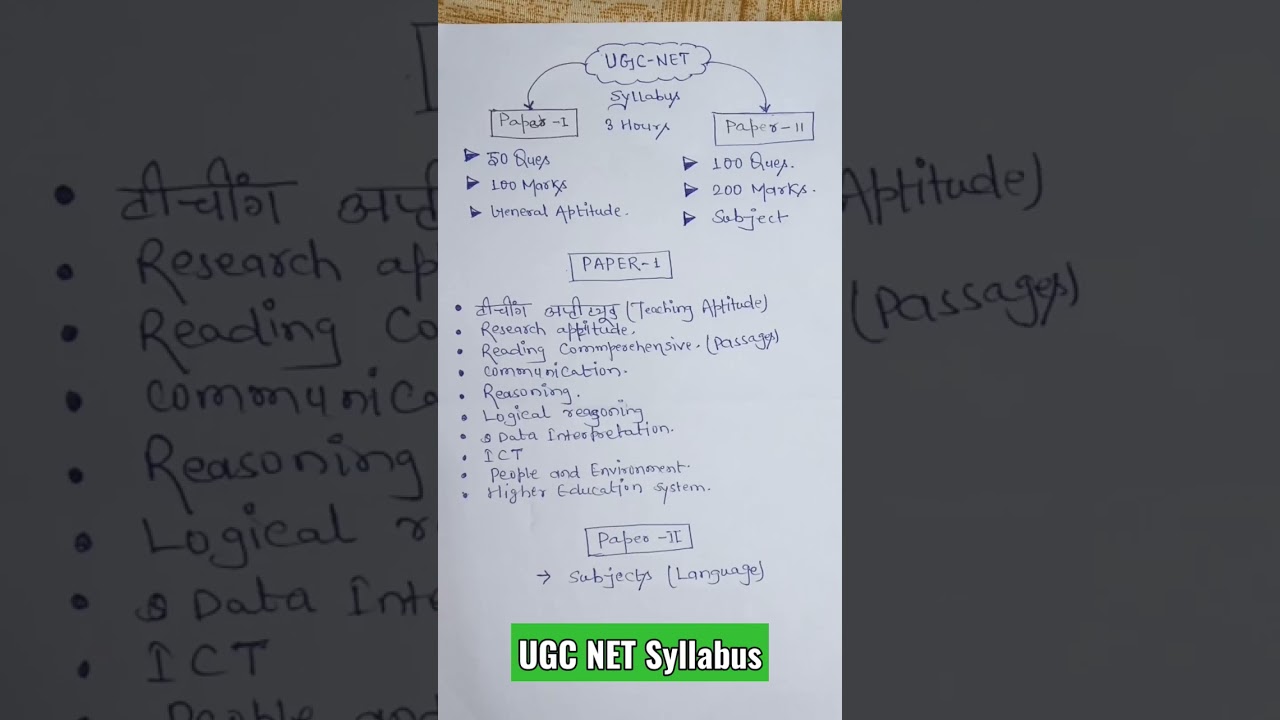 UGC-NET
Syllabus
3 Hours
Paper-I
50 Ques
100 Marks
General Aptitude.
Paper-II
100 Ques.
200 Marks.
Subject
PAPER-1
• टीचींग अप्टीट्यूड (Teaching Aptitude)
• Research apptitude.
• Reading Commperehensive. (Passages)
• Communication.
• Reasoning.
• Logical reasoning
• Data Interpretation.
• ICT
• People and Environment.
• Higher Education System.
Paper-II
→ Subjects (Language)
UGC NET Syllabus